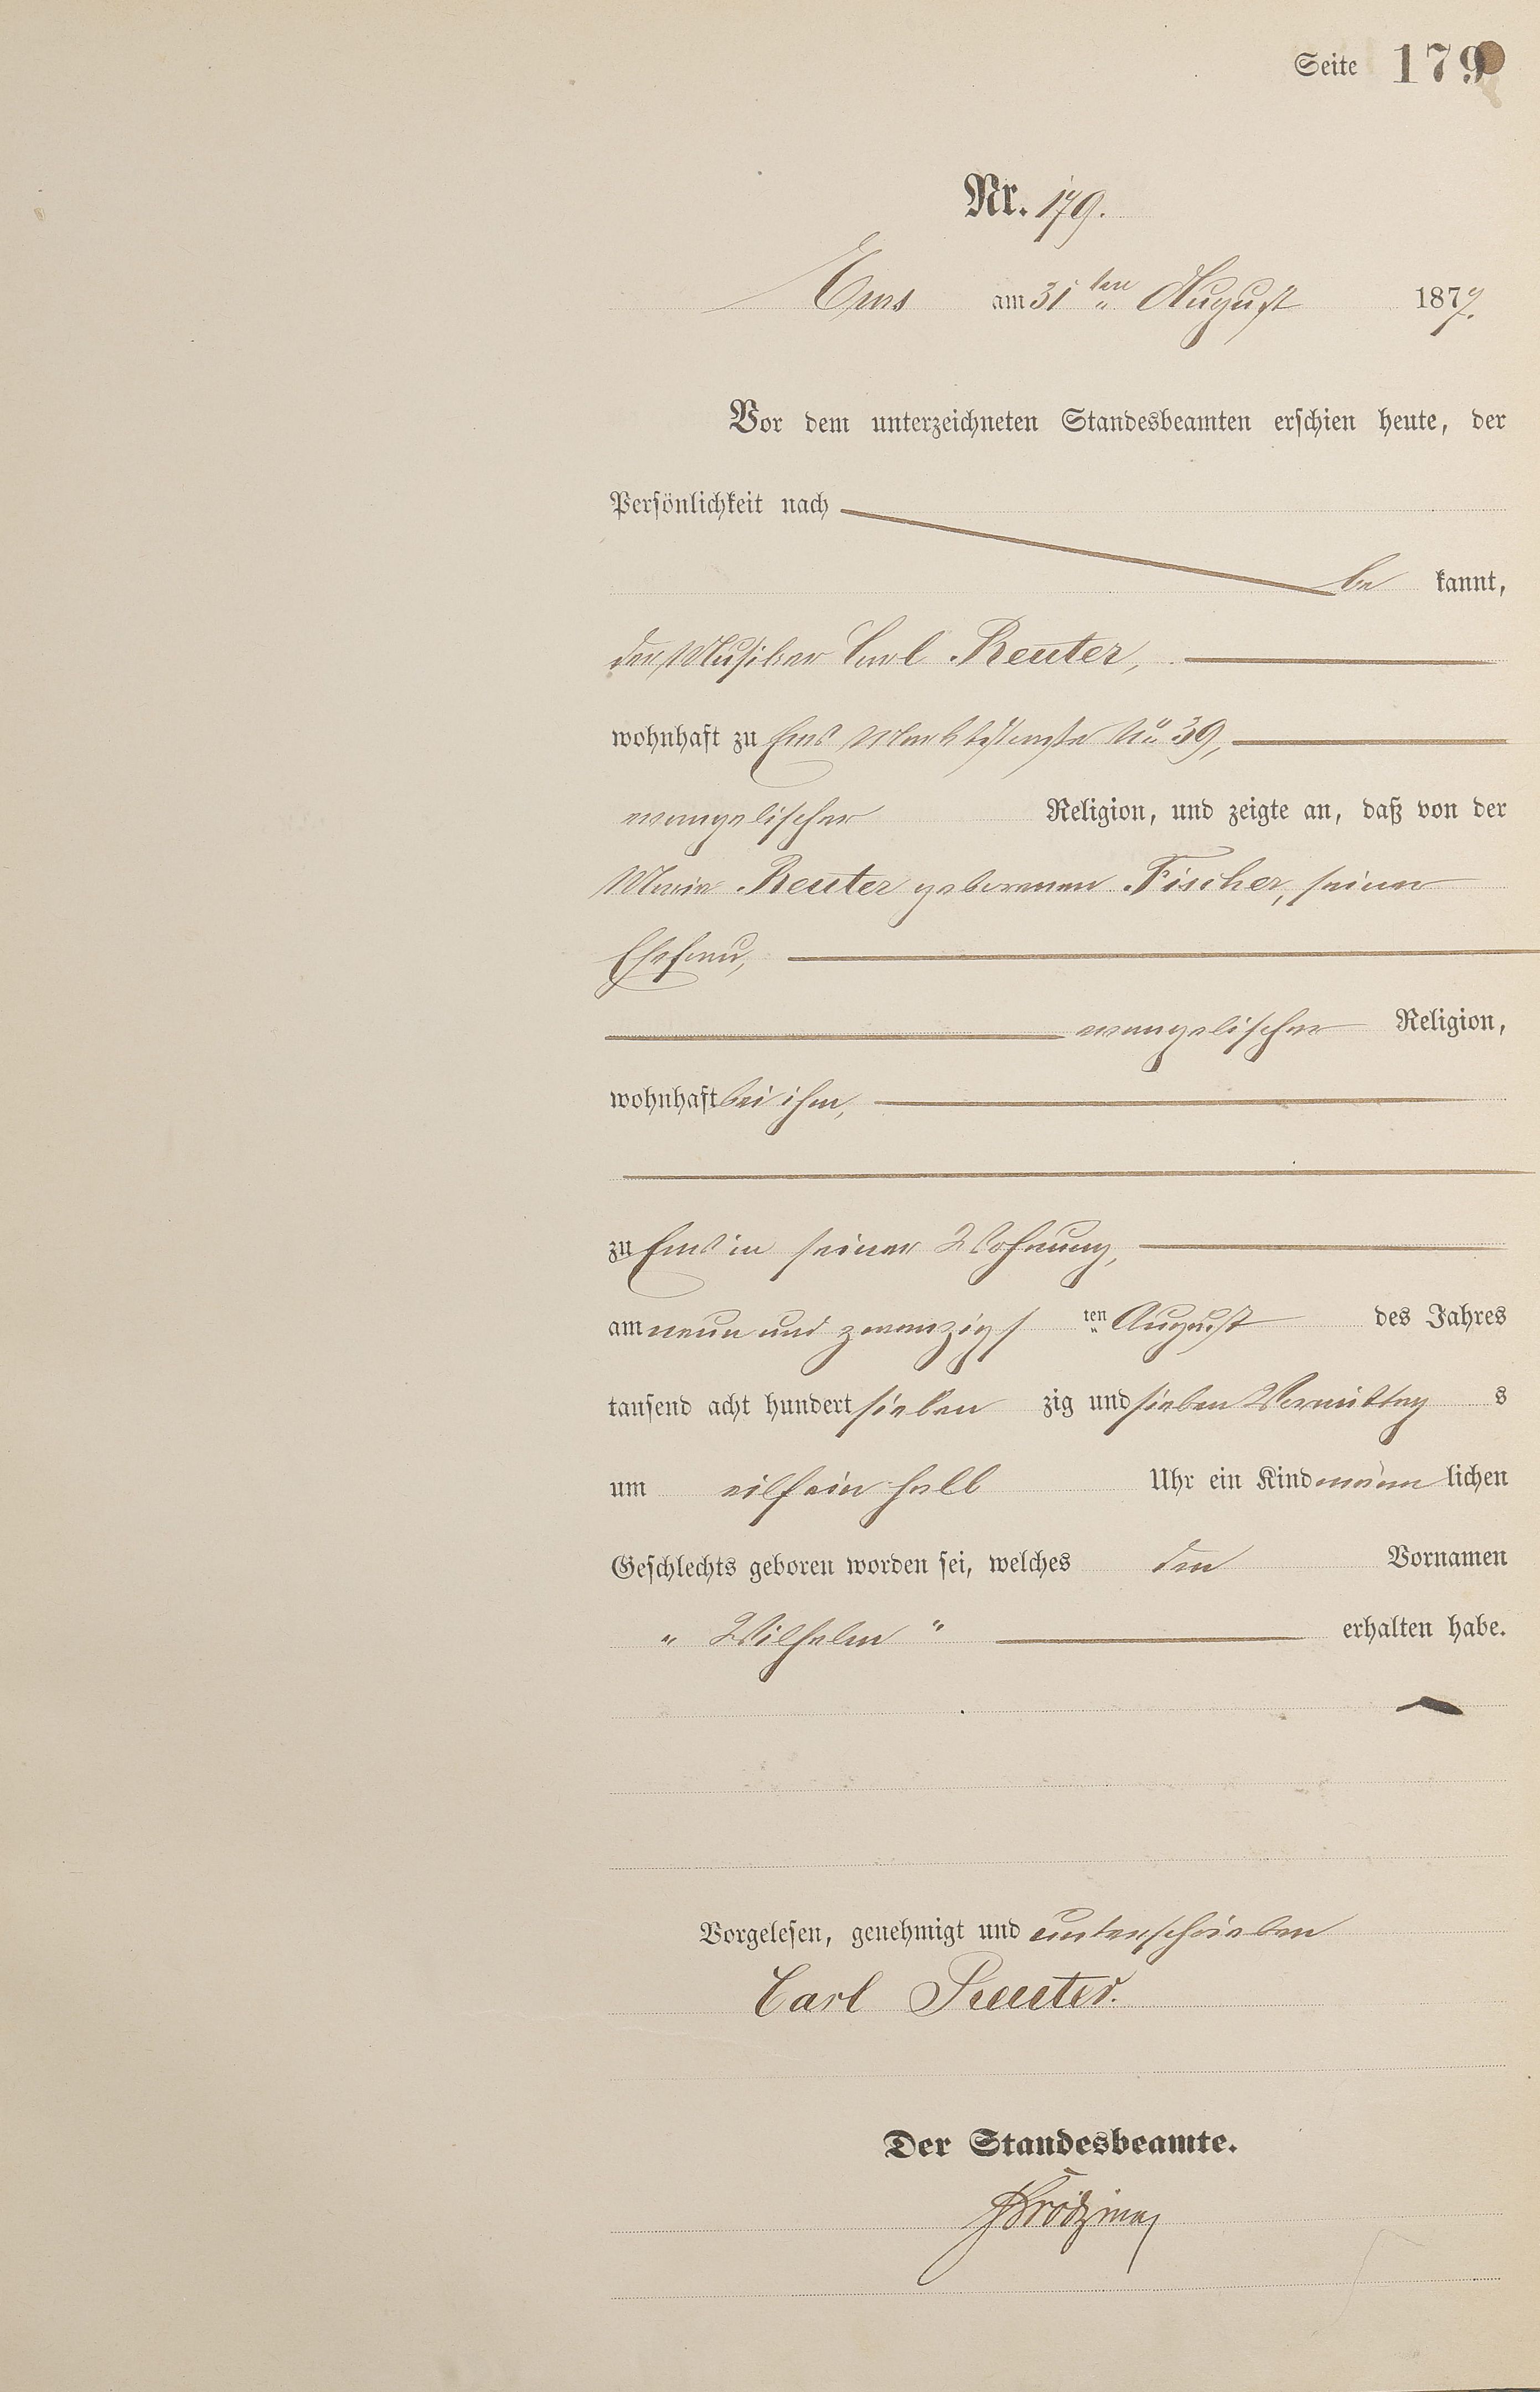 Seite 179
Nr. 179.
Ems am 31ten August 1877.
Vor dem unterzeichneten Standesbeamten erschien heute, der
Persönlichkeit nach
be kannt,
der Musiker Carl Reuter,
wohnhaft zu Ems Marktstraße No 39,
evangelischer Religion, und zeigte an, daß von der
Marie Reuter geborenen Fischer, seiner
Ehefrau,
evangelischer Religion,
wohnhaft bei ihm,
zu Ems in seiner Wohnung,
am neun und zwanzigs ten August des Jahres
tausend acht hundert sieben zig und sieben Vormittag s
um eilf ein halb Uhr ein Kind männ lichen
Geschlechts geboren worden sei, welches den Vornamen
„ Wilhelm “ erhalten habe.
Vorgelesen, genehmigt und unterschrieben
Carl Reuter.
Der Standesbeamte.